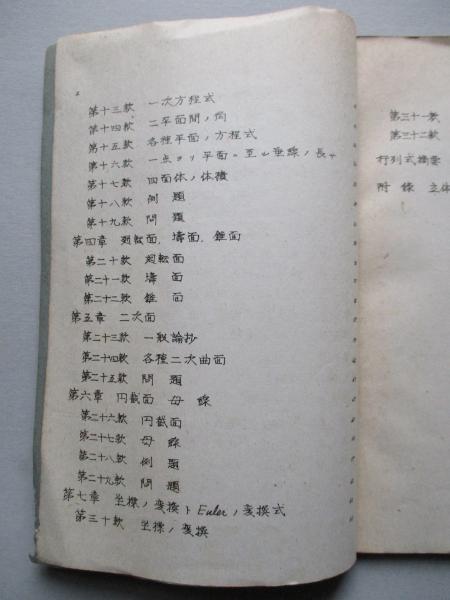 2
第十三款 一次方程式
第十四款 二平面間ノ角
第十五款 各種平面ノ方程式
第十六款 一点ヨリ平面ニ至ル垂線ノ長サ
第十七款 四面体ノ体積
第十八款 例題
第十九款 問題
第四章 廻転面、墻面、錐面
第二十款 廻転面
第二十一款 墻面
第二十二款 錐面
第五章 二次面
第二十三款 一般論抄
第二十四款 各種二次曲面
第二十五款 問題
第六章 円截面 母線
第二十六款 円截面
第二十七款 母線
第二十八款 例題
第二十九款 問題
第七章 坐標ノ変換ト Euler ノ変換式
第三十款 坐標ノ変換
第三十一款
第三十二款
行列式摘要
附録 立体